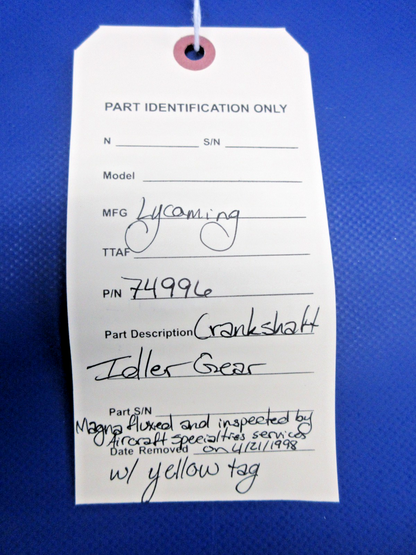 PART IDENTIFICATION ONLY
N S/N
Model
MFG Lycoming
TTAF
P/N 74996
Part Description Crankshaft
Idler Gear
Part S/N
Magnafluxed and inspected by
Aircraft Specialties services
Date Removed on 4/21/1998
w/ yellow tag